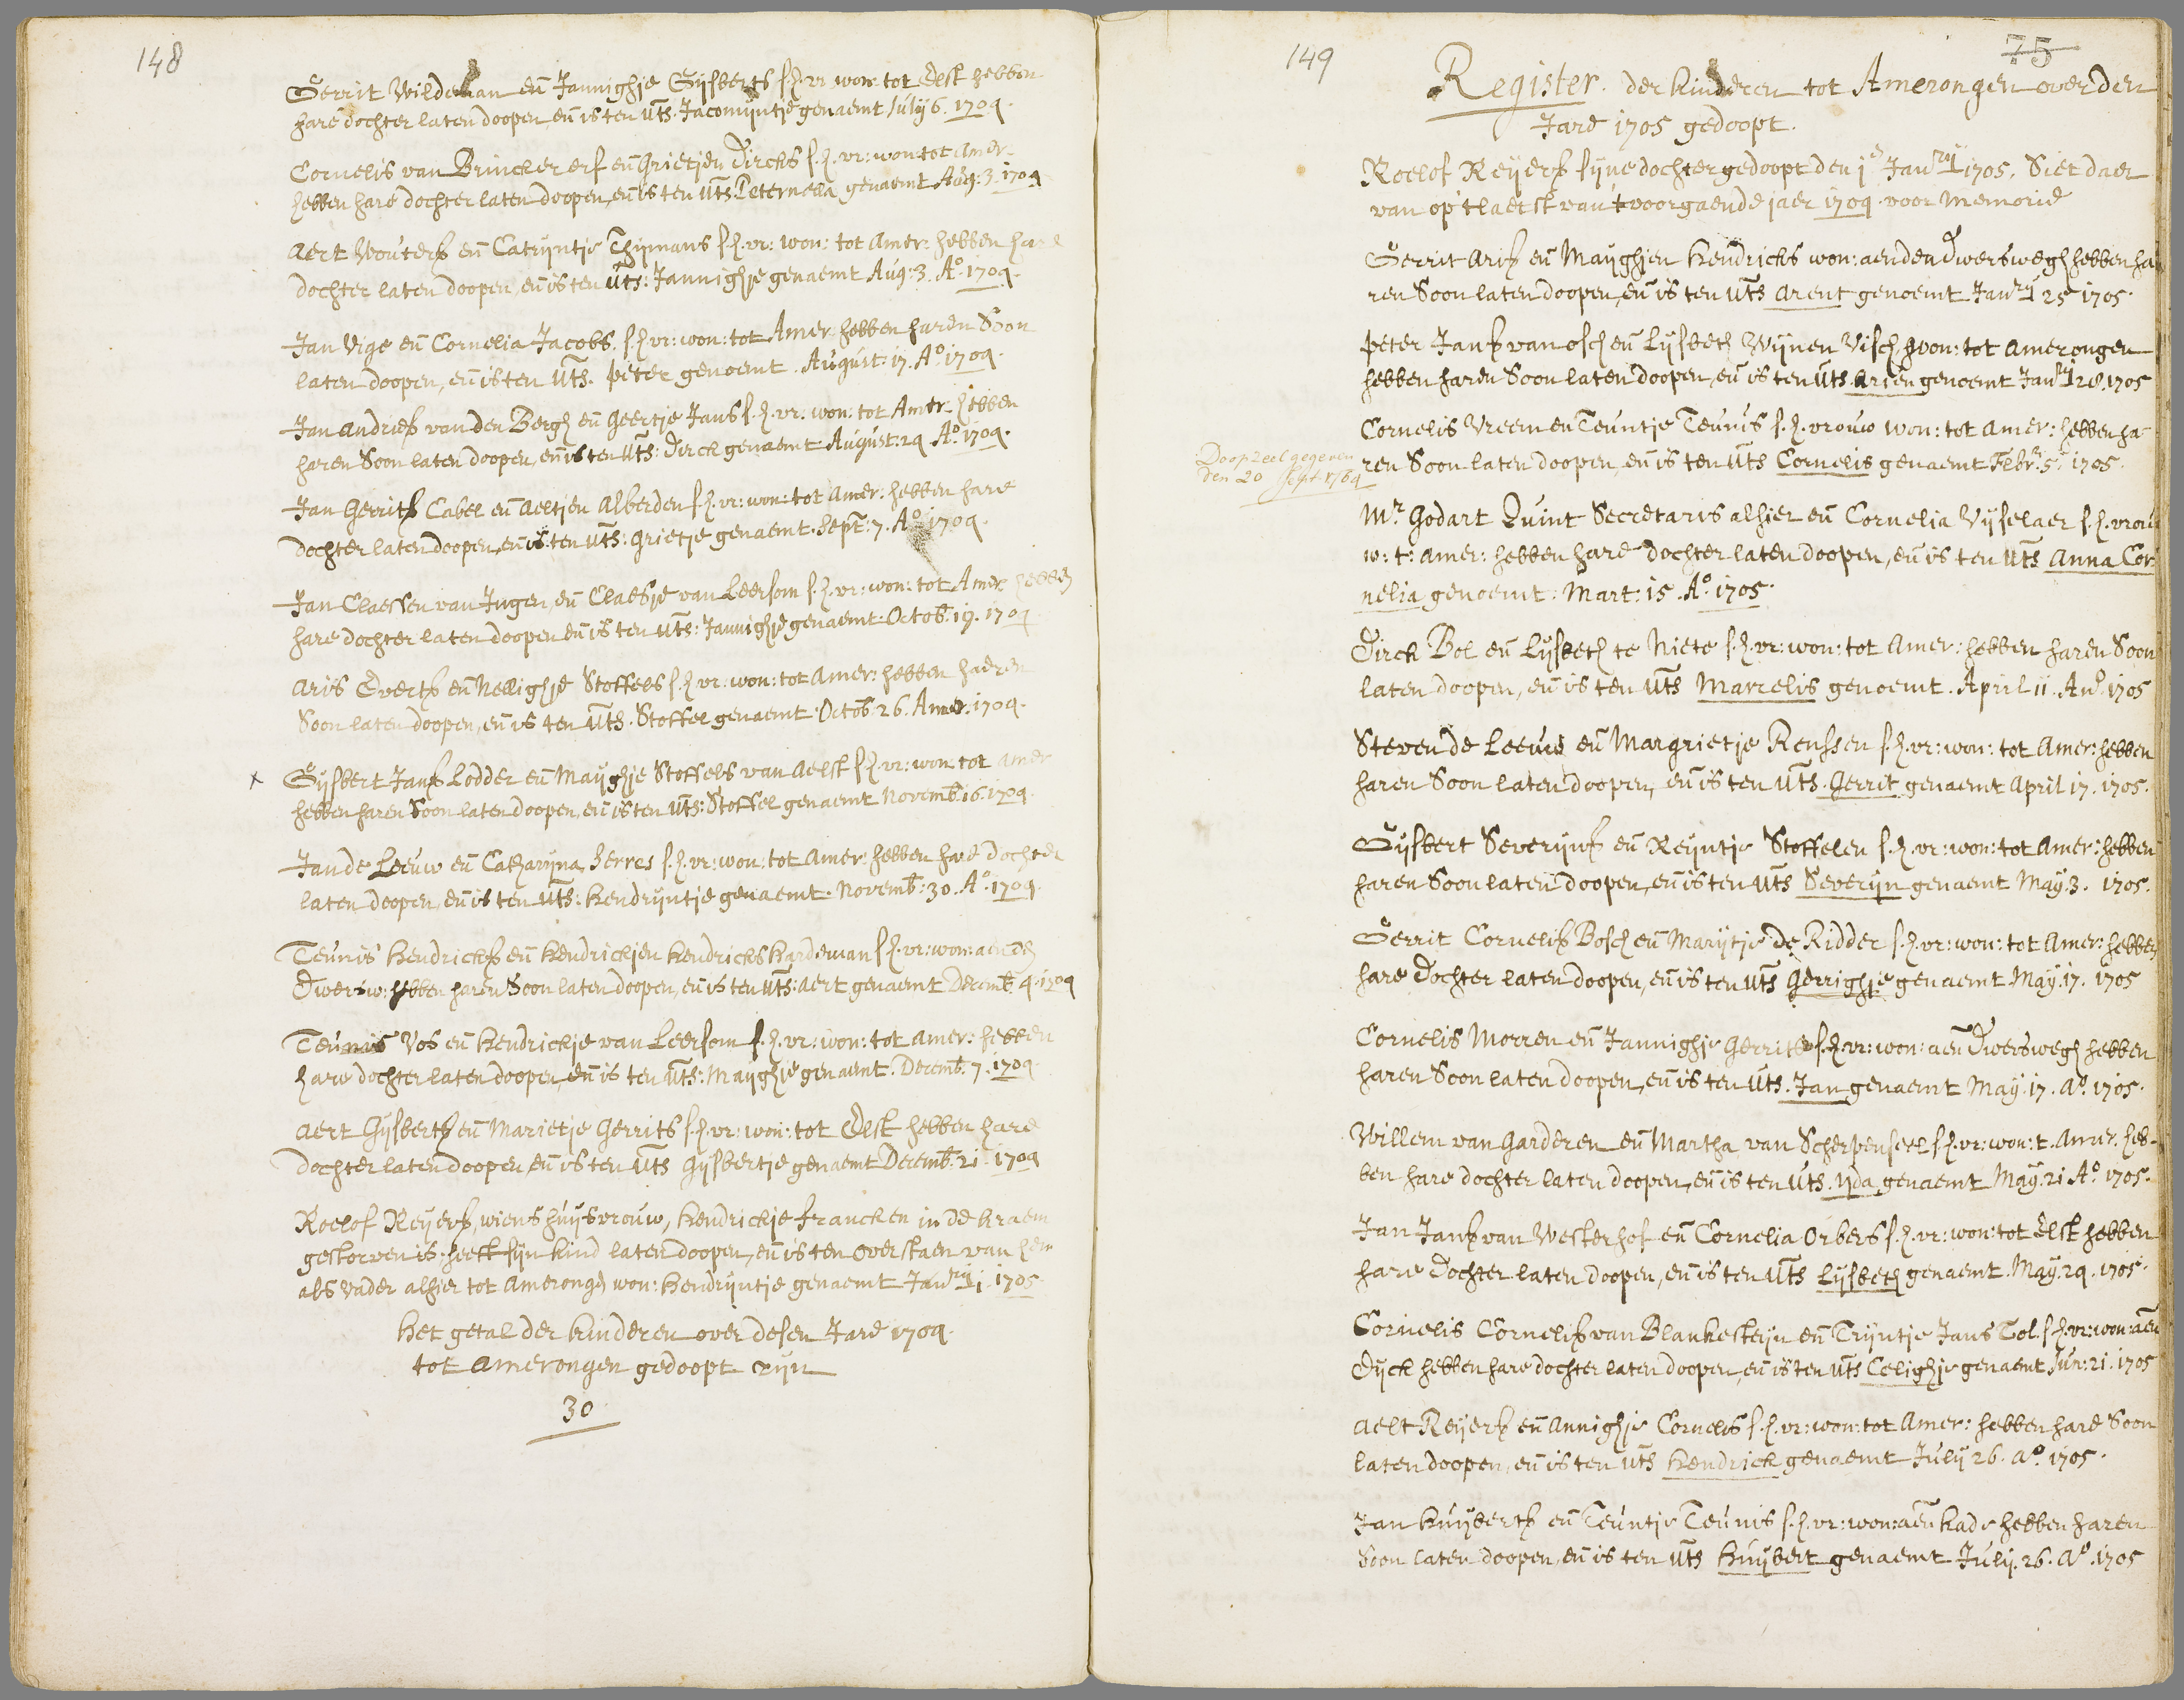 148
Gerrit Wildeman eñ Jannighje Gijsberts s. h. vr. won: tot Elst hebben
hare dochter laten doopen, eñ is ten uts. Jacomijntje genaemt July 6. 1704.
Cornelis van Brincker erf eñ Grietjen Dircks s. h. vr: won: tot Amer-
hebben hare dochter laten doopen, eñ is ten uts Peternella genaemt Aug: 3. 1704
Aert Wouterß eñ Catrijntje Thijmans s. h. vr: won: tot Amer: hebben hare
dochter laten doopen, eñ is ten uts: Jannighje genaemt Aug: 3. Aº. 1704.
Jan Vige eñ Cornelia Jacobs s. h. vr: won: tot Amer hebben haren Soon
laten doopen, eñ is ten uts. Peter genoemt. August: 17. Aº 1704.
Jan Andrieß van den Bergh eñ Geertje Jans s. h. vr. won: tot Amer: hebben
haren Soon laten doopen, eñ is ten uts: Dirck genaemt August: 24 Aº. 1704.
Jan Gerritß Cabel eñ Aeltjen Alberden s. h. vr: won: tot Amer: hebben hare
dochter laten doopen, eñ is ten uts: Grietje genaemt. Sept: 7. Aº 1704.
Jan Claessen van Ingen, eñ Claesje van Leersom s. h. vr: won: tot Amer hebben
hare dochter laten doopen eñ is ten uts: Jannighje genaemt: Octob: 19. 1704
Aris Evertß eñ Nellighje Stoffels s. h. vr: won: tot Amer: hebben haeren
Soon laten doopen, eñ is ten uts. Stoffel genaemt Octob: 26. Amer. 1704.
x Gijsbert Janß Lodder eñ Maijghje Stoffels van Aelst s. h. vr: won: tot Amer
hebben haren Soon laten doopen, eñ is ten uts: Stoffel genaemt Novemb: 16. 1704.
Jan de Leeuw eñ Catharyna Zerres s. h. vr: won: tot Amer: hebben hare dochter
laten doopen, eñ is ten uts: Hendrijntje genaemt. Novemb: 30. Aº. 1704.
Teunis Hendrickß eñ Hendrickjen Hendricks Hardeman s. h. vr: won: aenden
Dwersw: hebben haren Soon laten doopen, eñ is ten uts: Aert genaemt Decemb: 4. 1704
Teunis Vos eñ Hendrickje van Leersom s. h. vr: won: tot Amer: hebben
hare dochter laten doopen, eñ is ten uts: Maijghje genaemt. Decemb: 7. 1704.
Aert Gijsbertß eñ Marietje Gerrits s. h. vr: won: tot Elst hebben hare
dochter laten doopen, eñ is ten uts Gijsbertje genaemt Decemb: 21. 1704
Roelof Reyerß, wiens huijsvrouw, Hendrickje Francken in de kraem
gestorven is heeft sijn kind laten doopen, eñ is ten overstaen van hem
als Vader alhier tot Amerongen won: Hendrijntje genaemt Janry 1. 1705
Het getal der kinderen over desen Jare 1704.
tot Amerongen gedoopt zijn
30
149
75
Register. der kinderen tot Amerongen over den
Jare 1705 gedoopt.
Roelof Reyerß sijne dochter gedoopt den 1e Janry 1705. Siet daer
van op 't laetst van 't voorgaende jaer 1704. voor memorie
Gerrit Ariß eñ Mayghjen Hendricks won: aenden Dwerswegh hebben ha
ren Soon laten doopen, eñ is ten uts Arent genoemt Janry 25 1705.
Peter Janß van Osch eñ Lijsbeth Wijnen Visch, won: tot Amerongen
hebben haren Soon laten doopen, eñ is ten uts. Arien genoemt Janry 28. 1705
Cornelis Vreem en Teuntje Teunis s. h. vrouw won: tot Amer: hebben ha-
ren Soon laten doopen, eñ is ten uts Cornelis genaemt Febr: 5. 1705.
Doopzeel gegeven
den 20 Sept 1764
Mr. Godart Quint Secretaris alhier eñ Cornelia Vijselaer s. h. vrou
w: t: Amer: hebben hare dochter laten doopen, eñ is ten uts Anna Cor:
nelia genoemt: Mart: 15. Aº. 1705.
Dirck Bol eñ Lijsbeth te Niete s. h. vr: won: tot Amer: hebben haren Soon
laten doopen, eñ is ten uts Marcelis genoemt. April 11. Anº. 1705
Steven de Leeuw eñ Margrietje Renssen s. h. vr: won: tot Amer: hebben
haren Soon laten doopen, eñ is ten uts. Gerrit genaemt April 17. 1705.
Gijsbert Severijnß eñ Reijntje Stoffelen s. h. vr: won: tot Amer: hebben
haren Soon laten doopen, eñ is ten uts Severijn genaemt May. 3. 1705.
Gerrit Cornelisß Bosch eñ Marijtje de Ridder s. h. vr: won: tot Amer: hebben
hare Dochter laten doopen, eñ is ten uts Gerrighje genaemt May. 17. 1705
Cornelis Morren eñ Jannighje Gerrits s. h. vr: won: aen Dwerswegh hebben
haren Soon laten doopen, eñ is ten uts. Jan genaemt May. 17. Aº. 1705.
Willem van Garderen eñ Martha van Scherpenseel s. h. vr: won: t. Amer. heb-
ben hare dochter laten doopen, eñ is ten uts. Yda genaemt May: 21 Aº 1705.
Jan Janß van Westerhof eñ Cornelia Orbers s. h. vr: won: tot Elst hebben
hare Dochter laten doopen, eñ is ten uts Lijsbeth genaemt. May: 24. 1705.
Cornelis Cornelisß van Blankesteijn eñ Trijntje Jans Tol. s. h. vr: won: aen
Dijck hebben hare dochter laten doopen, eñ is ten uts Celighje genaemt Jun: 21. 1705
Aelt Reyerß eñ Annighje Cornelis s. h. vr: won: tot Amer: hebben hare Soon
laten doopen, eñ is ten uts Hendrick genaemt July 26. Aº. 1705.
Jan Huijbertß eñ Teuntje Teunis s. h. vr: won: aen Kade hebben haren
Soon laten doopen, eñ is ten uts Huijbert genaemt July. 26. Aº. 1705